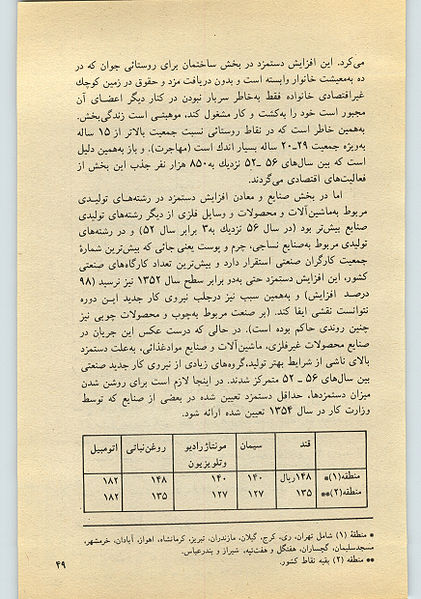 می‌کرد. این افزایش دستمزد در بخش ساختمان برای روستائی جوان که در
ده به‌معیشت خانوار وابسته است و بدون دریافت مزد و حقوق در زمین کوچك
غیراقتصادی خانواده فقط به‌خاطر سربار نبودن در کنار دیگر اعضـای آن
مجبور است خود را به‌کشت و کار مشغول کند، موهبتـی است زندگی‌بخش.
به‌همین خاطر است که در نقاط روستائی نسبت جمعیت بالاتر از ۱۵ ساله
به‌ویژه جمعیت ۲۹ـ۲۰ ساله بسیار اندك است (مهاجرت). و باز به‌همین دلیل
است که بین سال‌های ۵۶ ـ ۵۲ نزدیك به‌۸۵۰ هزار نفر جذب این بخش از
فعالیت‌های اقتصادی می‌گردند.
اما در بخش صنایع و معادن افزایش دستمزد در رشته‌هـای تولیـدی
مربوط به‌ماشین‌آلات و محصولات و وسایل فلزی از دیگر رشته‌های تولیدی
صنایع بیش‌تر بود (در سال ۵۶ نزدیك به‌۳ برابر سال ۵۲) و در رشته‌های
تولیدی مربوط به‌صنایع نساجی، چرم و پوست یعنی جائی که بیش‌ترین شمارهٔ
جمعیت کارگران صنعتی استقرار دارد و بیش‌ترین تعداد کارگاه‌های صنعتی
کشور، این افزایش دستمزد حتی به‌دو برابر سطح سال ۱۳۵۲ نیز نرسید (۹۸
درصـد افزایش) و به‌همین سبب نیز درجلب نیروی کار جدید ایـن دوره
نتوانست نقشی ایفا کند. (بر صنعت مربوط به‌چوب و محصولات چوبی نیز
چنین روندی حاکم بوده است). در حالی که درست عکس این جریان در
صنایع محصولات غیرفلزی، ماشین‌آلات و صنایع موادغذائی، به‌علت دستمزد
بالای ناشی از شرایط بهتر تولید، گروه‌های زیادی از نیروی کار جدید صنعتی
بین سال‌های ۵۶ ـ ۵۲ متمرکز شدند. در اینجا لازم است برای روشن شدن
میزان دستمزدها، حداقل دستمزد تعیین شده در بعضی از صنایع که توسط
وزارت کار در سال ۱۳۵۴ تعیین شده ارائه شود.
قند سیمان مونتاژ رادیو روغن‌نباتی اتومبیل
وتلویزیون
منطقه(۱)* ۱۴۸ریال ۱۴۰ ۱۴۰ ۱۴۸ ۱۸۲
منطقه(۲)** ۱۳۵ ۱۲۷ ۱۲۷ ۱۳۵ ۱۸۲
* منطقهٔ (۱) شامل تهران، ری، کرج، گیلان، مازندران، تبریز، کرمانشاه، اهواز، آبادان، خرمشهر،
مسجدسلیمان، گچساران، هفتگل و هفت‌تپه، شیراز و بندرعباس.
** منطقه (۲) بقیه نقاط کشور.
۴۹